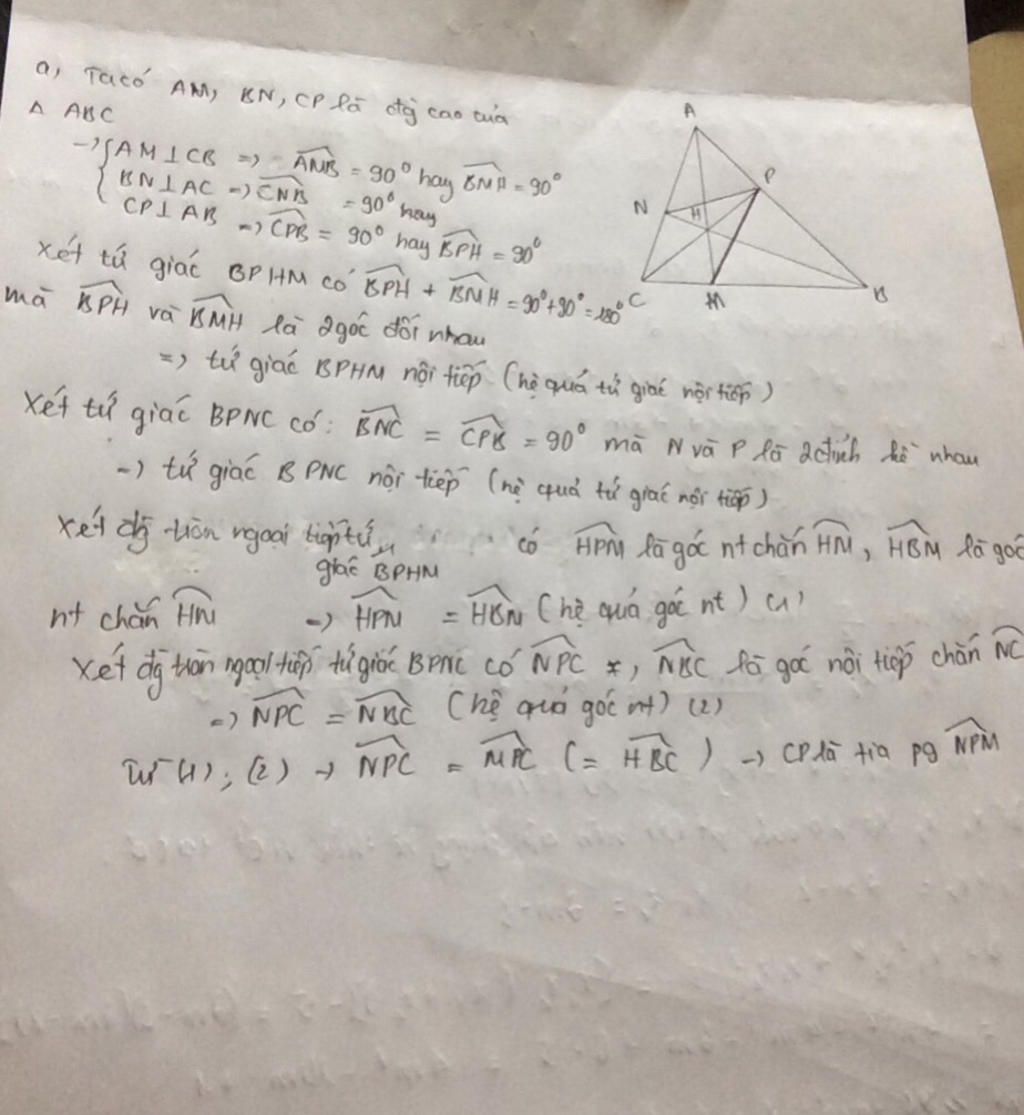 a, Ta có AM, BN, CP là đg cao của
Δ ABC
→ { AM ⊥ CB => AMB = 90° hay BMH = 90°
BN ⊥ AC → CNB = 90° hay
CP ⊥ AB → CPB = 90° hay BPH = 90°
Xét tứ giác BPHM có BPH + BMH = 90° + 90° = 180°
mà BPH và BMH là 2 góc đối nhau
=> tứ giác BPHM nội tiếp (hệ quả tứ giác nội tiếp)
Xét tứ giác BPNC có: BNC = CPB = 90° mà N và P là 2 đỉnh kề nhau
→ tứ giác BPNC nội tiếp (hệ quả tứ giác nội tiếp)
Xét đg tròn ngoại tiếp tứ giác BPHM có HPM là góc nt chắn HM, HBM là góc
nt chắn HM → HPM = HBM (hệ quả góc nt) (1)
Xét đg tròn ngoại tiếp tứ giác BPNC có NPC, NBC là góc nội tiếp chắn NC
=> NPC = NBC (hệ quả góc nt) (2)
Từ (1); (2) → NPC = MPC (= HBC) → CP là tia pg NPM
A
P
N
H
C
M
B